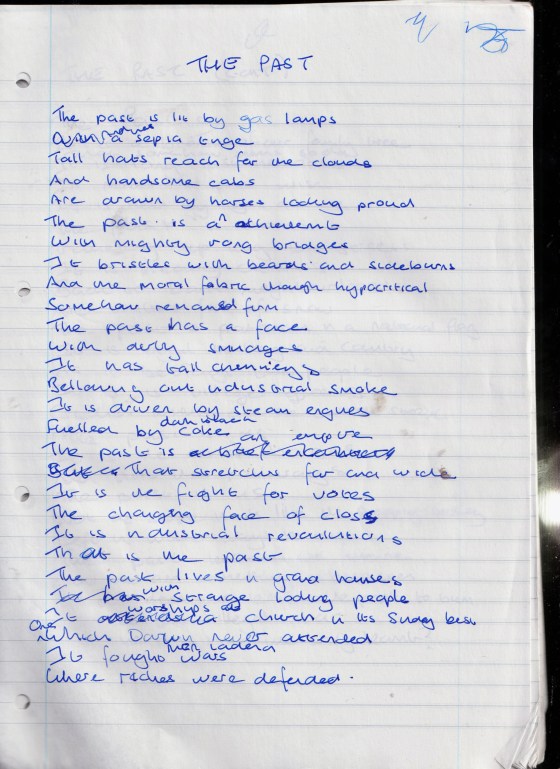 THE PAST
The past is lit by gas lamps
a sepia tinge
Tall hats reach for the clouds
And handsome cabs
Are drawn by horses looking proud
The past is a achievement
With mighty bridges
It bristles with beards and sideburns
And the moral fabric though hypocritical
Somehow remained firm
The past has a face
With dirty smudges
It has tall chimneys
Bellowing out industrial smoke
It is driven by steam engines
Fuelled by coke
The past is an empire
That stretches far and wide
It is the fight for votes
The changing face of class
It is industrial revolutions
That is the past
The past lives in grand houses
with strange looking people
It worships church in its Sunday best
One which Darwin never attended
It fought wars
Where riches were defended.